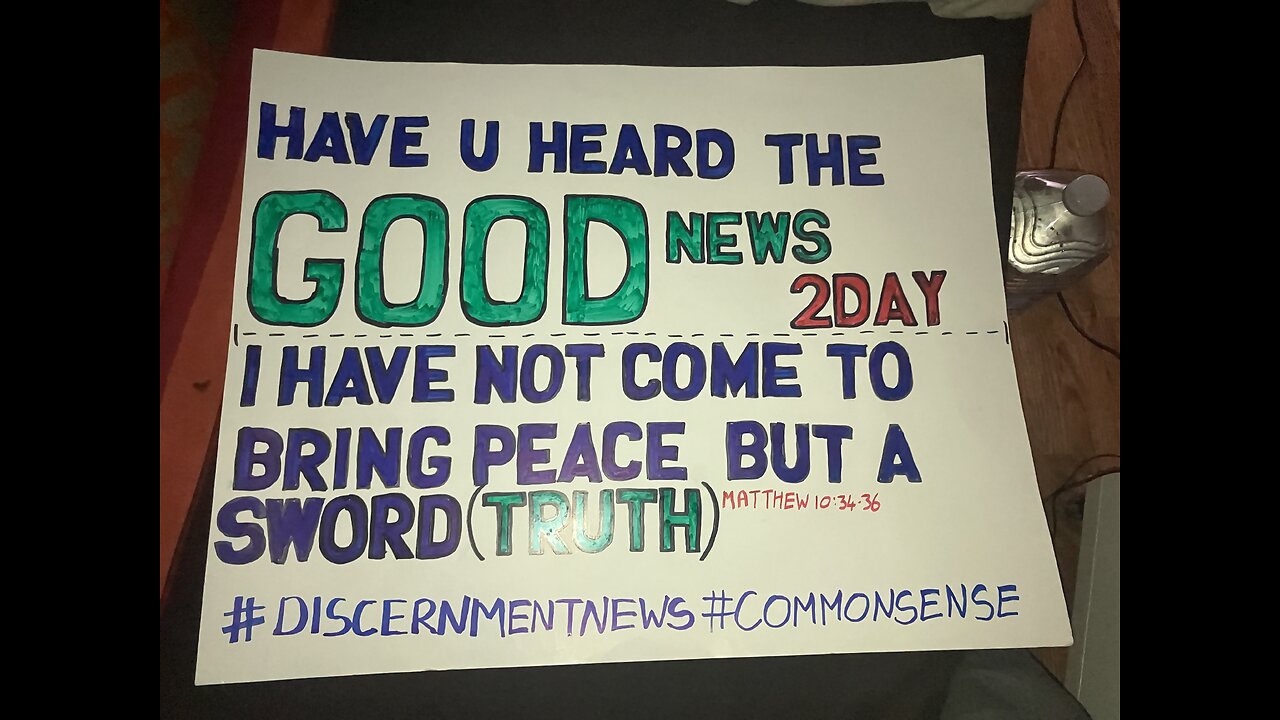 HAVE U HEARD THE
GOOD NEWS
2DAY
I HAVE NOT COME TO
BRING PEACE BUT A
SWORD (TRUTH) MATTHEW 10:34-36
#DISCERNMENTNEWS #COMMONSENSE